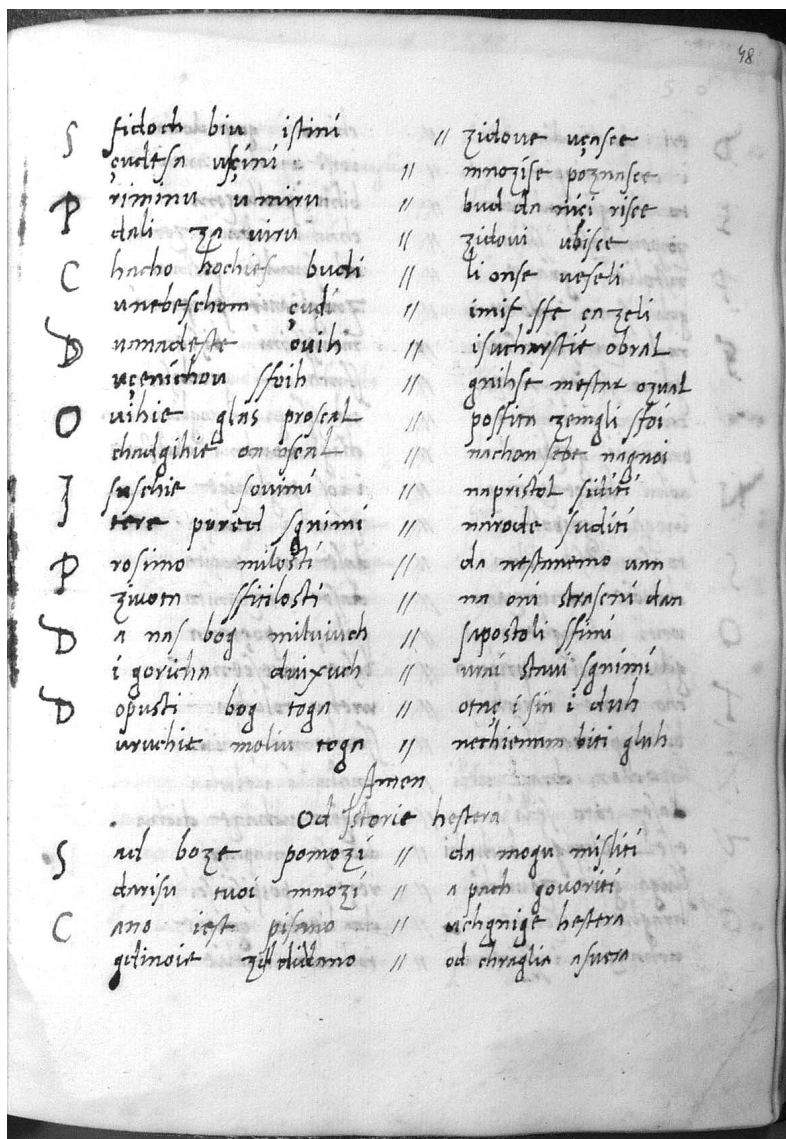 48
S fidoch biu istini // zidove uçasee
çudesa usçini // mnozise poznasee
P riminu umiru // bud da niçi risee
dali za viru // zidovi ubisee
C hacho hochies budi // li onse veseli
unebeschom çudi // imif sfe çazeli
D vanadeste ovih // isucharstie obral
uçenichov sfoih // gnihse mestar ozval
O vihie glas proscal // posfita zemgli sfoi
chadgihie on oscal // nachon sebe nagnoi
I suschie sovimi // napristol siditi
tere pored sgnimi // narode suditi
P rosimo milosti // da nestanemo van
zivota sfitilosti // na oni straseni dan
D a nas bog miluiuch // sapostoli sfimi
i goricha duixuch // vrai stavi sgnimi
D opusti bog toga // otaç i sin i duh
uruchie moliu toga // nechiemam biti gluh
Amen
Od Istorie hestera
S ad boze pomozi // da mogu misliti
darisu tvoi mnozi // a pach govoriti
C ano iest pisano // uchgnige hestera
gdinoie // od chraglia asvera